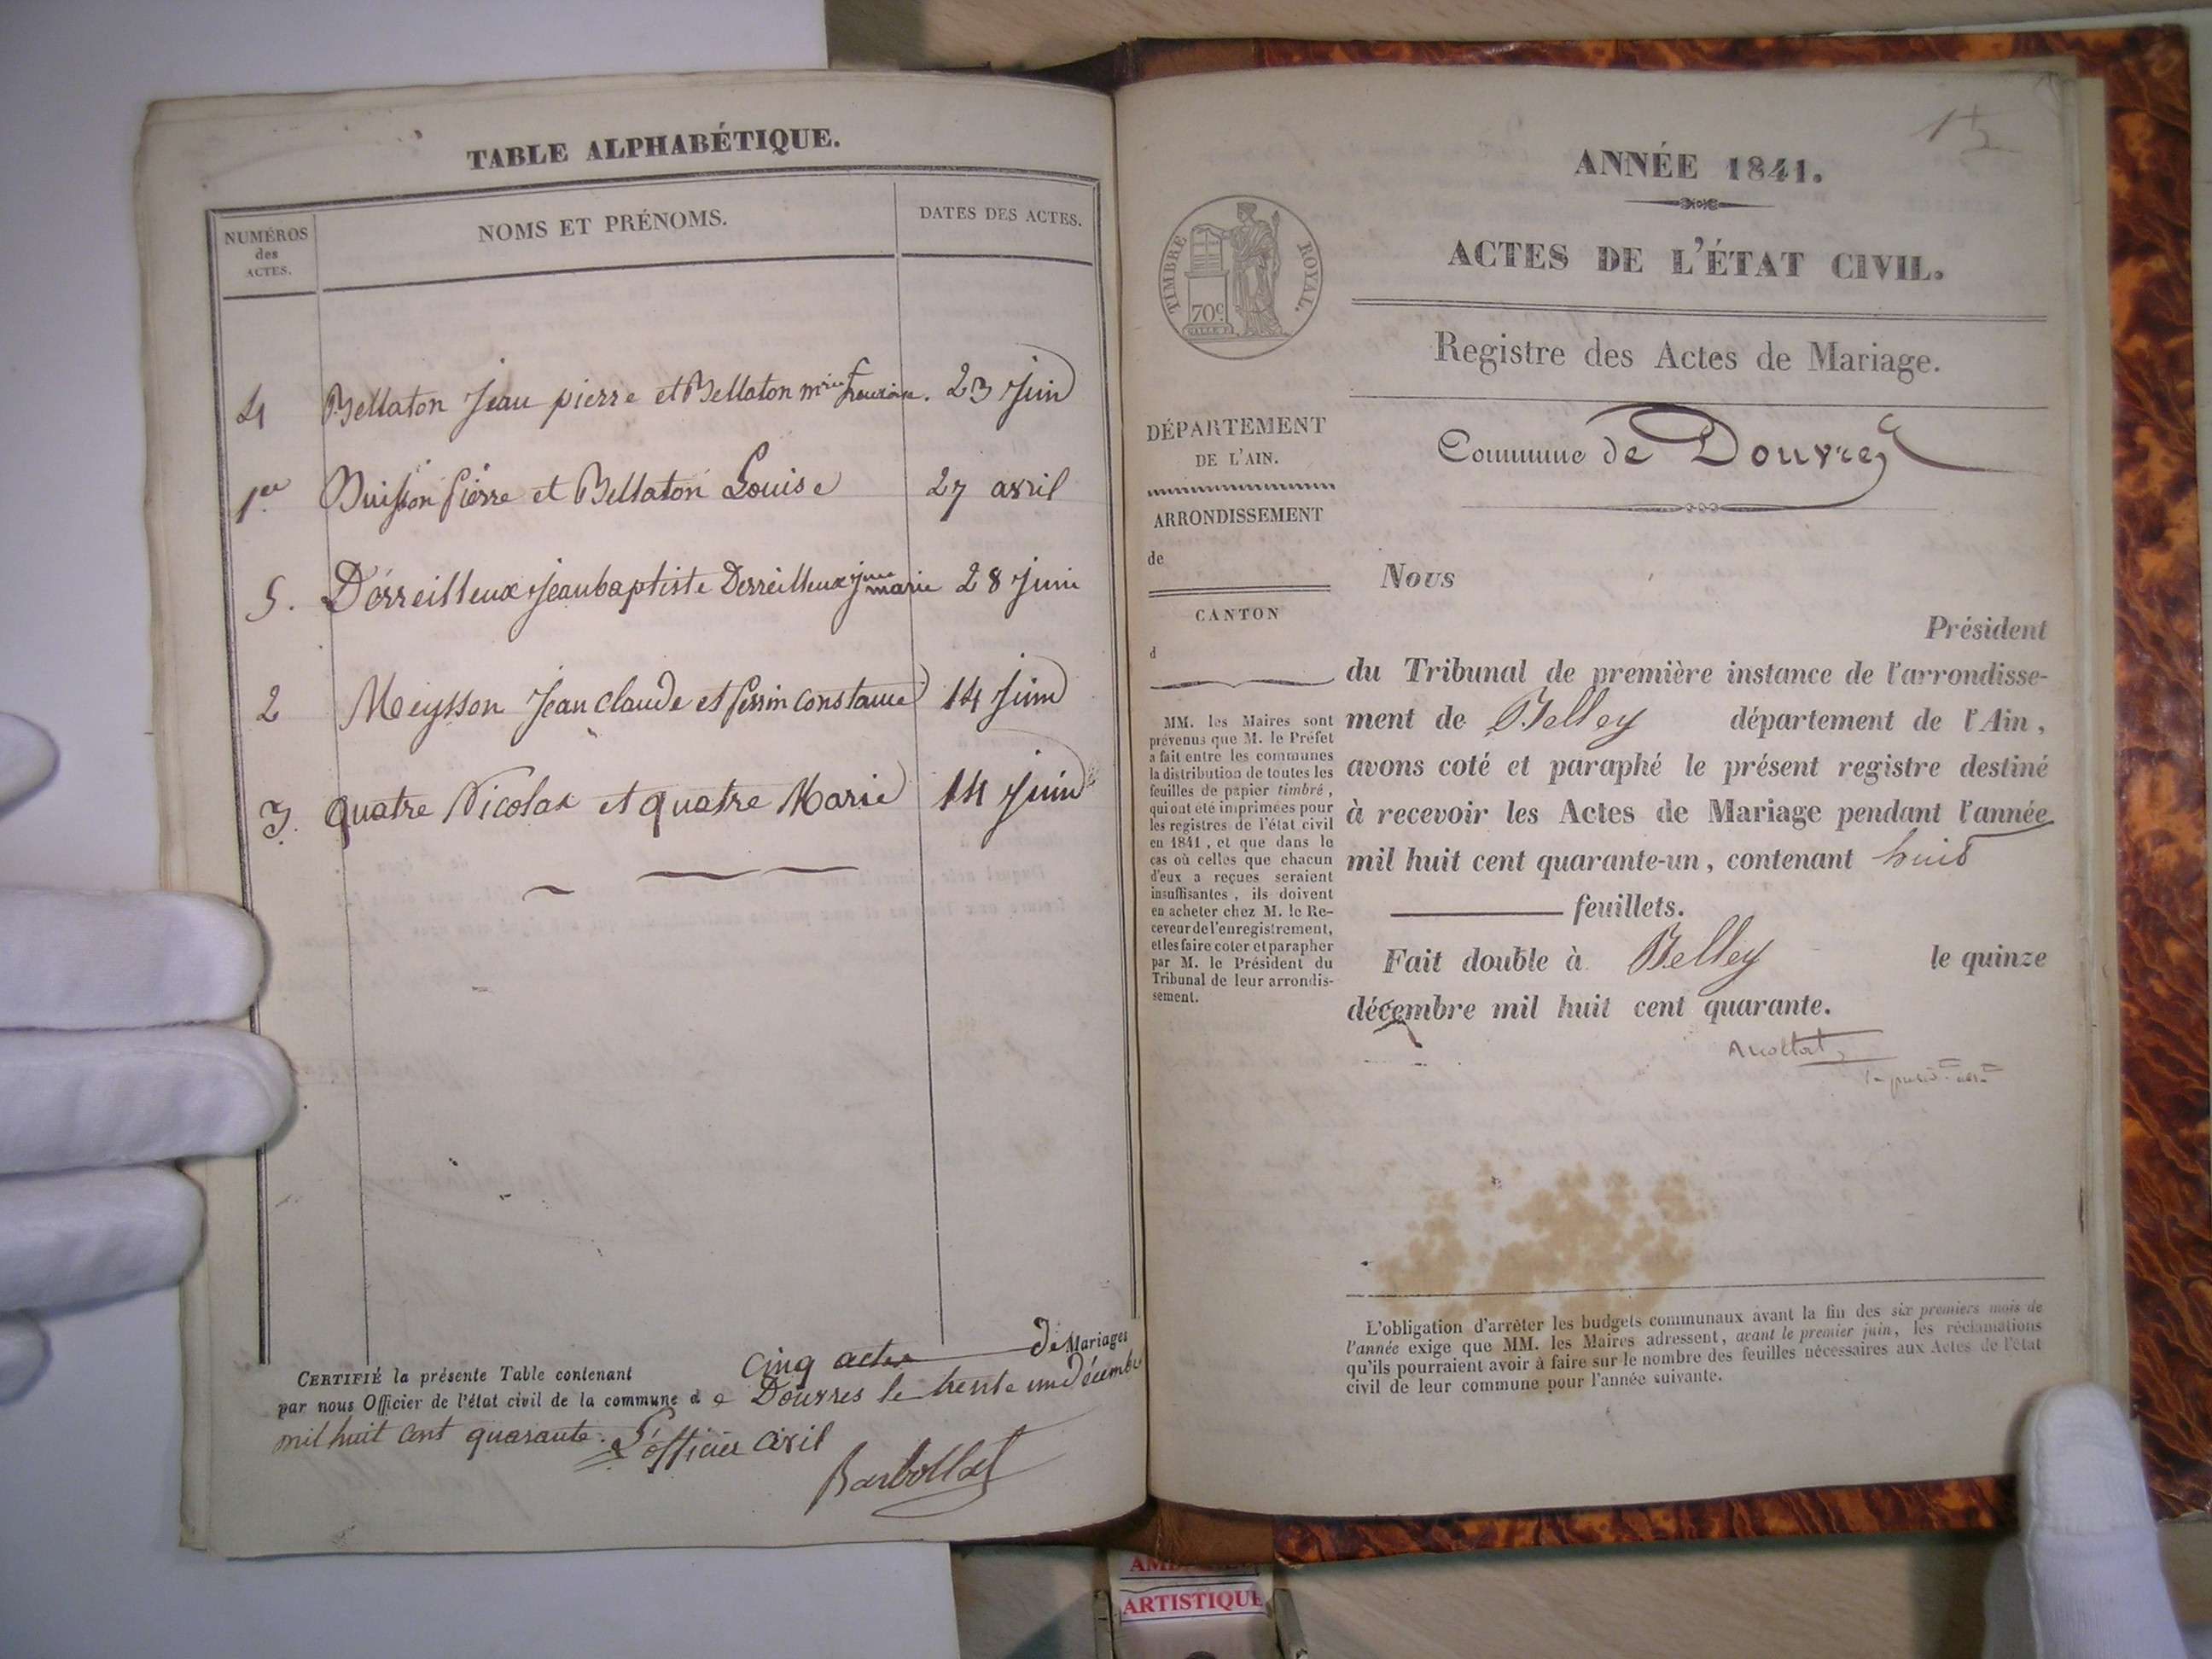 TABLE ALPHABÉTIQUE.
NUMÉROS
des
ACTES.
NOMS ET PRÉNOMS.
DATES DES ACTES.
4 Bellaton Jean pierre et Bellaton mrie 23 Juin
1er Buisson Pierre et Bellaton Louise 27 avril
5. Dérreilleux Jeanbaptiste Derreilleux Jnne marie 28 Juin
2 Meysson Jean Claude et Perrin Constance 14 Juin
3. quatre Nicolas et quatre Marie 14 Juin
CERTIFIÉ la présente Table contenant Cinq actes de Mariages
par nous Officier de l'état civil de la commune de Douvres le trente un décembre
mil huit cent quarante. L'officier Civil
Barbollat
1
ANNÉE 1841.
ACTES DE L'ÉTAT CIVIL.
TIMBRE ROYAL.
70c
Registre des Actes de Mariage.
Commune de Douvres
DÉPARTEMENT
DE L'AIN.
ARRONDISSEMENT
de
CANTON
d
MM. les Maires sont
prévenus que M. le Préfet
a fait entre les communes
la distribution de toutes les
feuilles de papier timbré,
qui ont été imprimées pour
les registres de l'état civil
en 1841, et que dans le
cas où celles que chacun
d'eux a reçues seraient
insuffisantes, ils doivent
en acheter chez M. le Re-
ceveur de l'enregistrement,
et les faire coter et parapher
par M. le Président du
Tribunal de leur arrondis-
sement.
Nous
Président
du Tribunal de première instance de l'arrondisse-
ment de Belley département de l'Ain,
avons coté et paraphé le présent registre destiné
à recevoir les Actes de Mariage pendant l'année
mil huit cent quarante-un, contenant huit
feuillets.
Fait double à Belley le quinze
décembre mil huit cent quarante.
L'obligation d'arrêter les budgets communaux avant la fin des six premiers mois de
l'année exige que MM. les Maires adressent, avant le premier juin, les réclamations
qu'ils pourraient avoir à faire sur le nombre des feuilles nécessaires aux Actes de l'état
civil de leur commune pour l'année suivante.
ARTISTIQUE